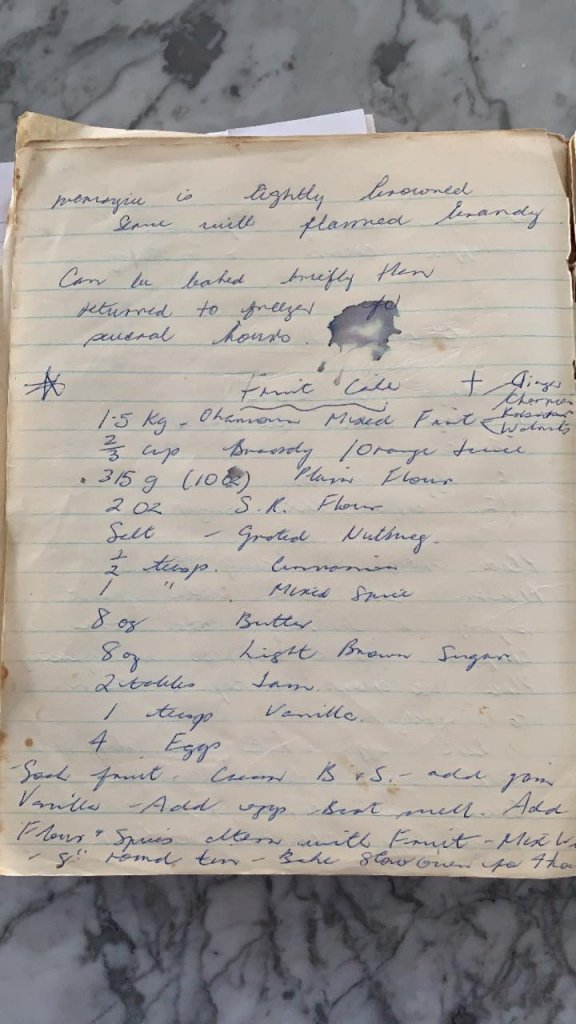 is lightly browned
Serve with flamed brandy
Can be baked briefly then
returned to freezer for
several hours.
Fruit Cake + Ginger
Cherries
Walnuts
1.5 Kg - Mixed Fruit
2/3 cup Brandy / Orange Juice
315 g (10 oz) Plain Flour
2 oz S.R. Flour
Salt - Grated Nutmeg.
1/2 teasp. Cinnamon
1 " Mixed Spice
8 oz Butter.
8 oz Light Brown Sugar
2 tables Jam.
1 teasp Vanilla.
4 Eggs
- Soak fruit. Cream B & S. - add jam
Vanilla - Add eggs Beat well. Add
Flour & Spices altern with Fruit - Mix W
- 8" round tin - Bake Slow oven fo 4 ho